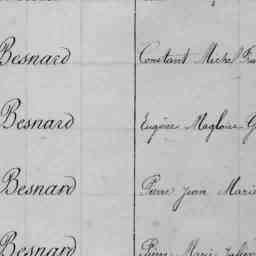 Besnard Constant Michel
Besnard Eugène Magloire
Besnard Pierre Jean Marie
Besnard Pierre Marie Julien